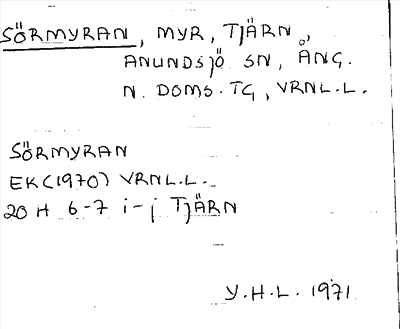 SÖRMYRAN, MYR, TJÄRN,
ANUNDSJÖ SN, ÅNG.
N. DOMS. TG, VRNL.L.
SÖRMYRAN
EK(1970) VRNL.L.
20 H 6-7 i-j TJÄRN
Y.H.L. 1971